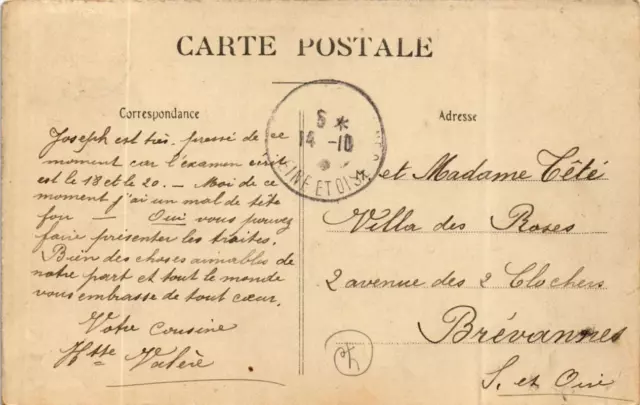 CARTE POSTALE
Correspondance
Joseph est très pressé de ce
moment car l'examen écrit
est le 18 et le 20. — Moi de ce
moment j'ai un mal de tête
fou — Oui vous pouvez
faire présenter les traites.
Bien des choses aimables de
notre part et tout le monde
vous embrasse de tout cœur.
Votre cousine
Htte Valère
5 *
14 -10
SEINE ET OISE
Adresse
M. et Madame Tété
Villa des Roses
2 avenue des 2 Clochers
Brévannes
S. et Oise